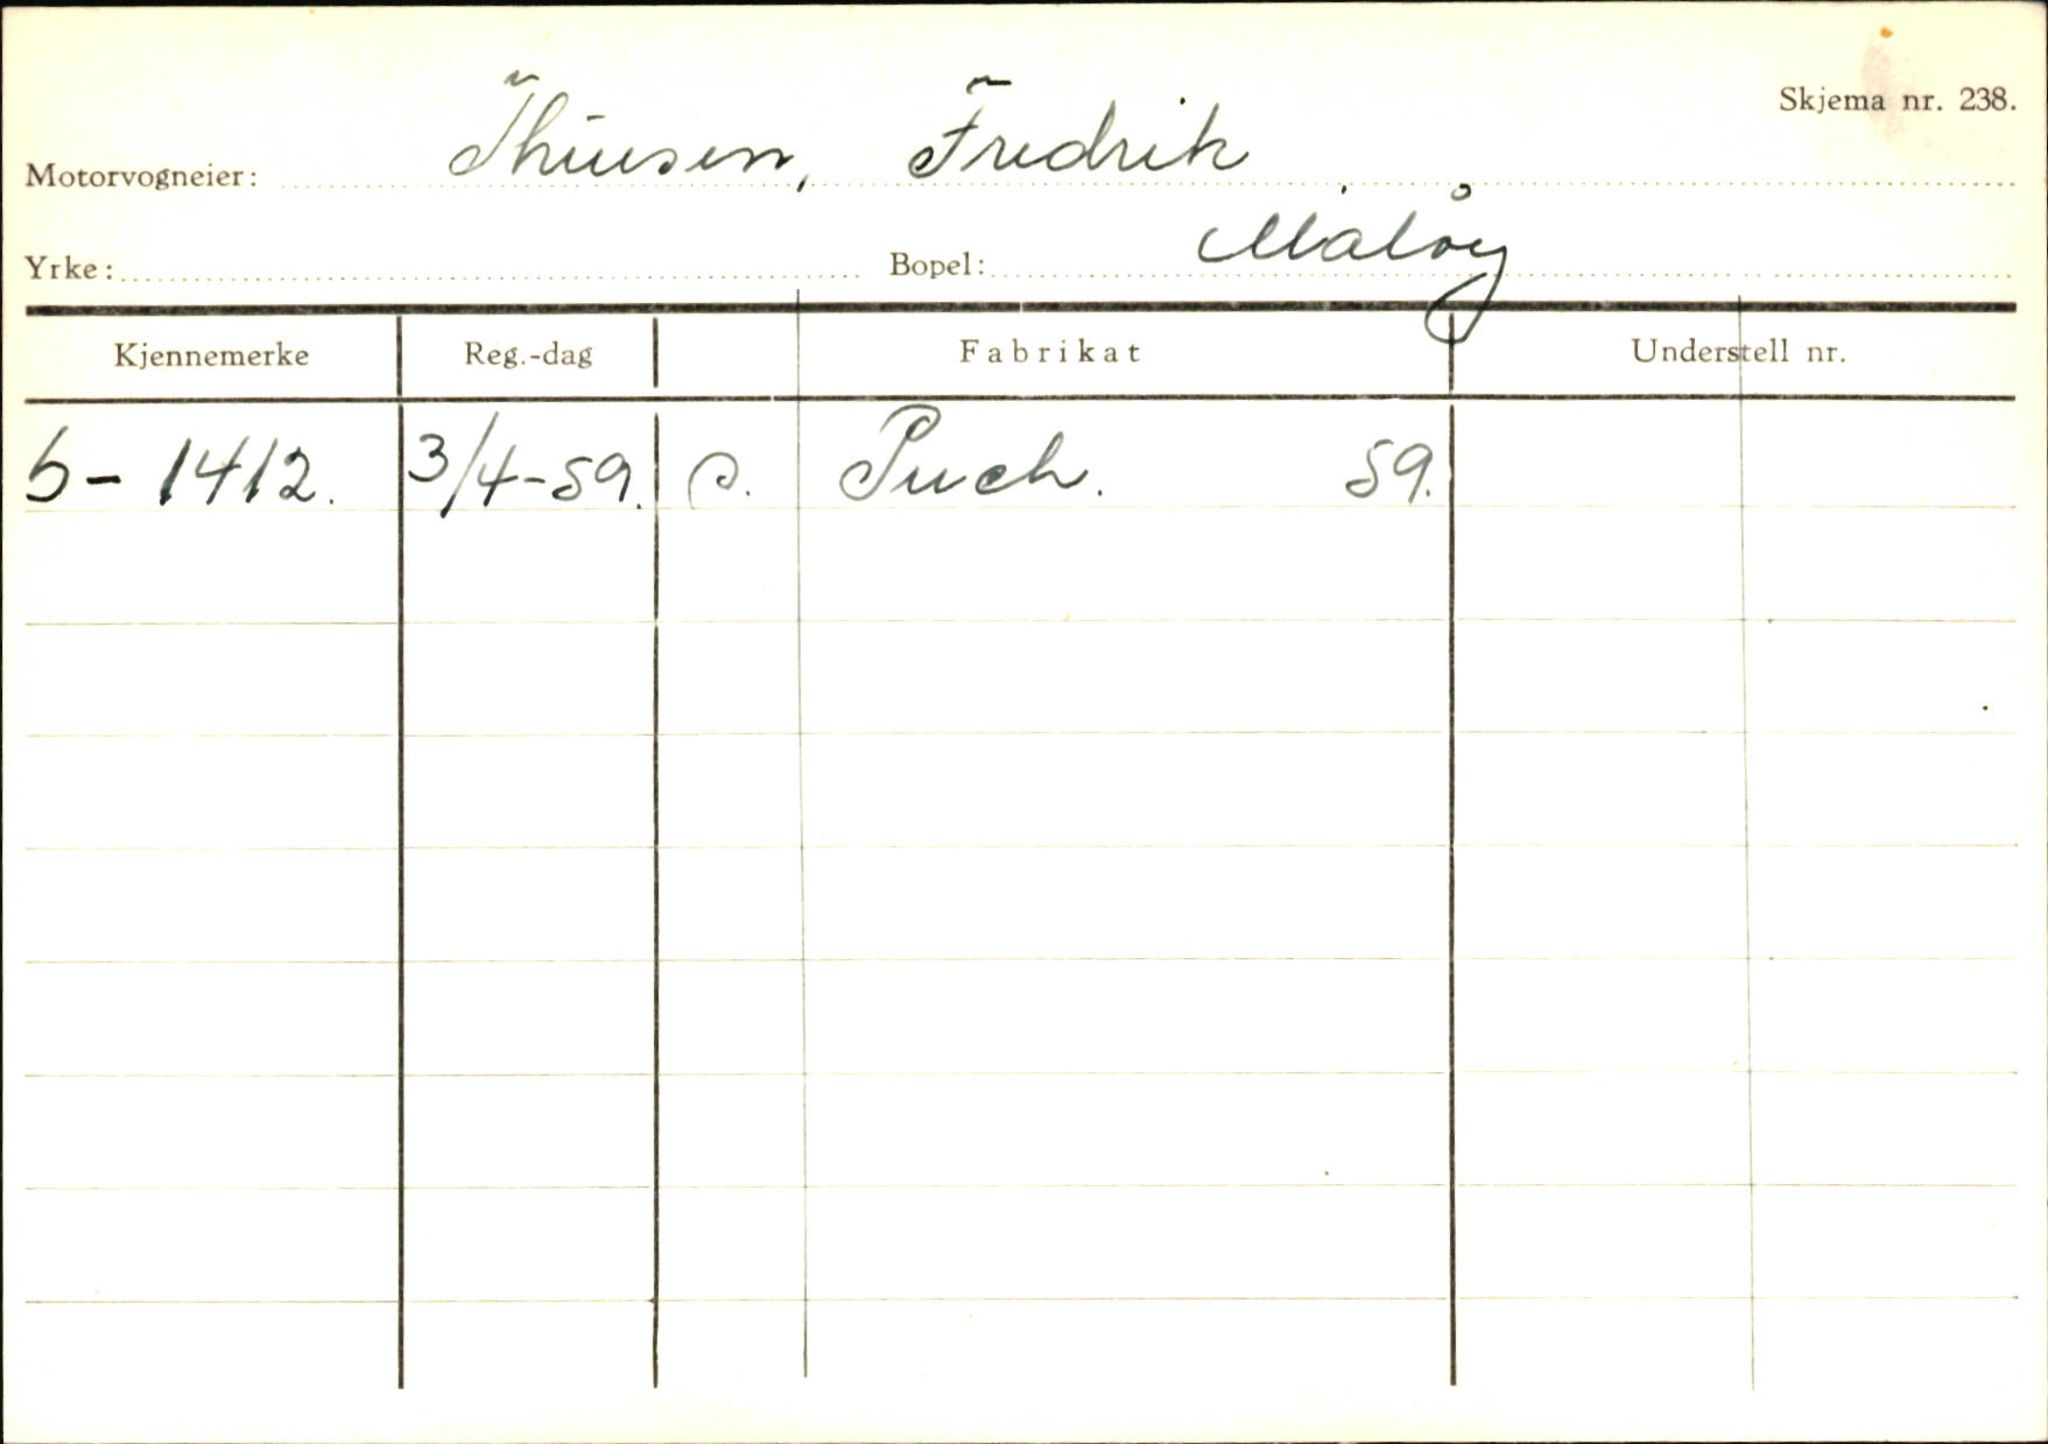 Skjema nr. 238.
Motorvogneier: Thuesen, Fredrik
Yrke: Bopel: Måløy
Kjennemerke Reg.-dag Fabrikat Understell nr.
S-1412. 3/4-59. s. Puch. 59.